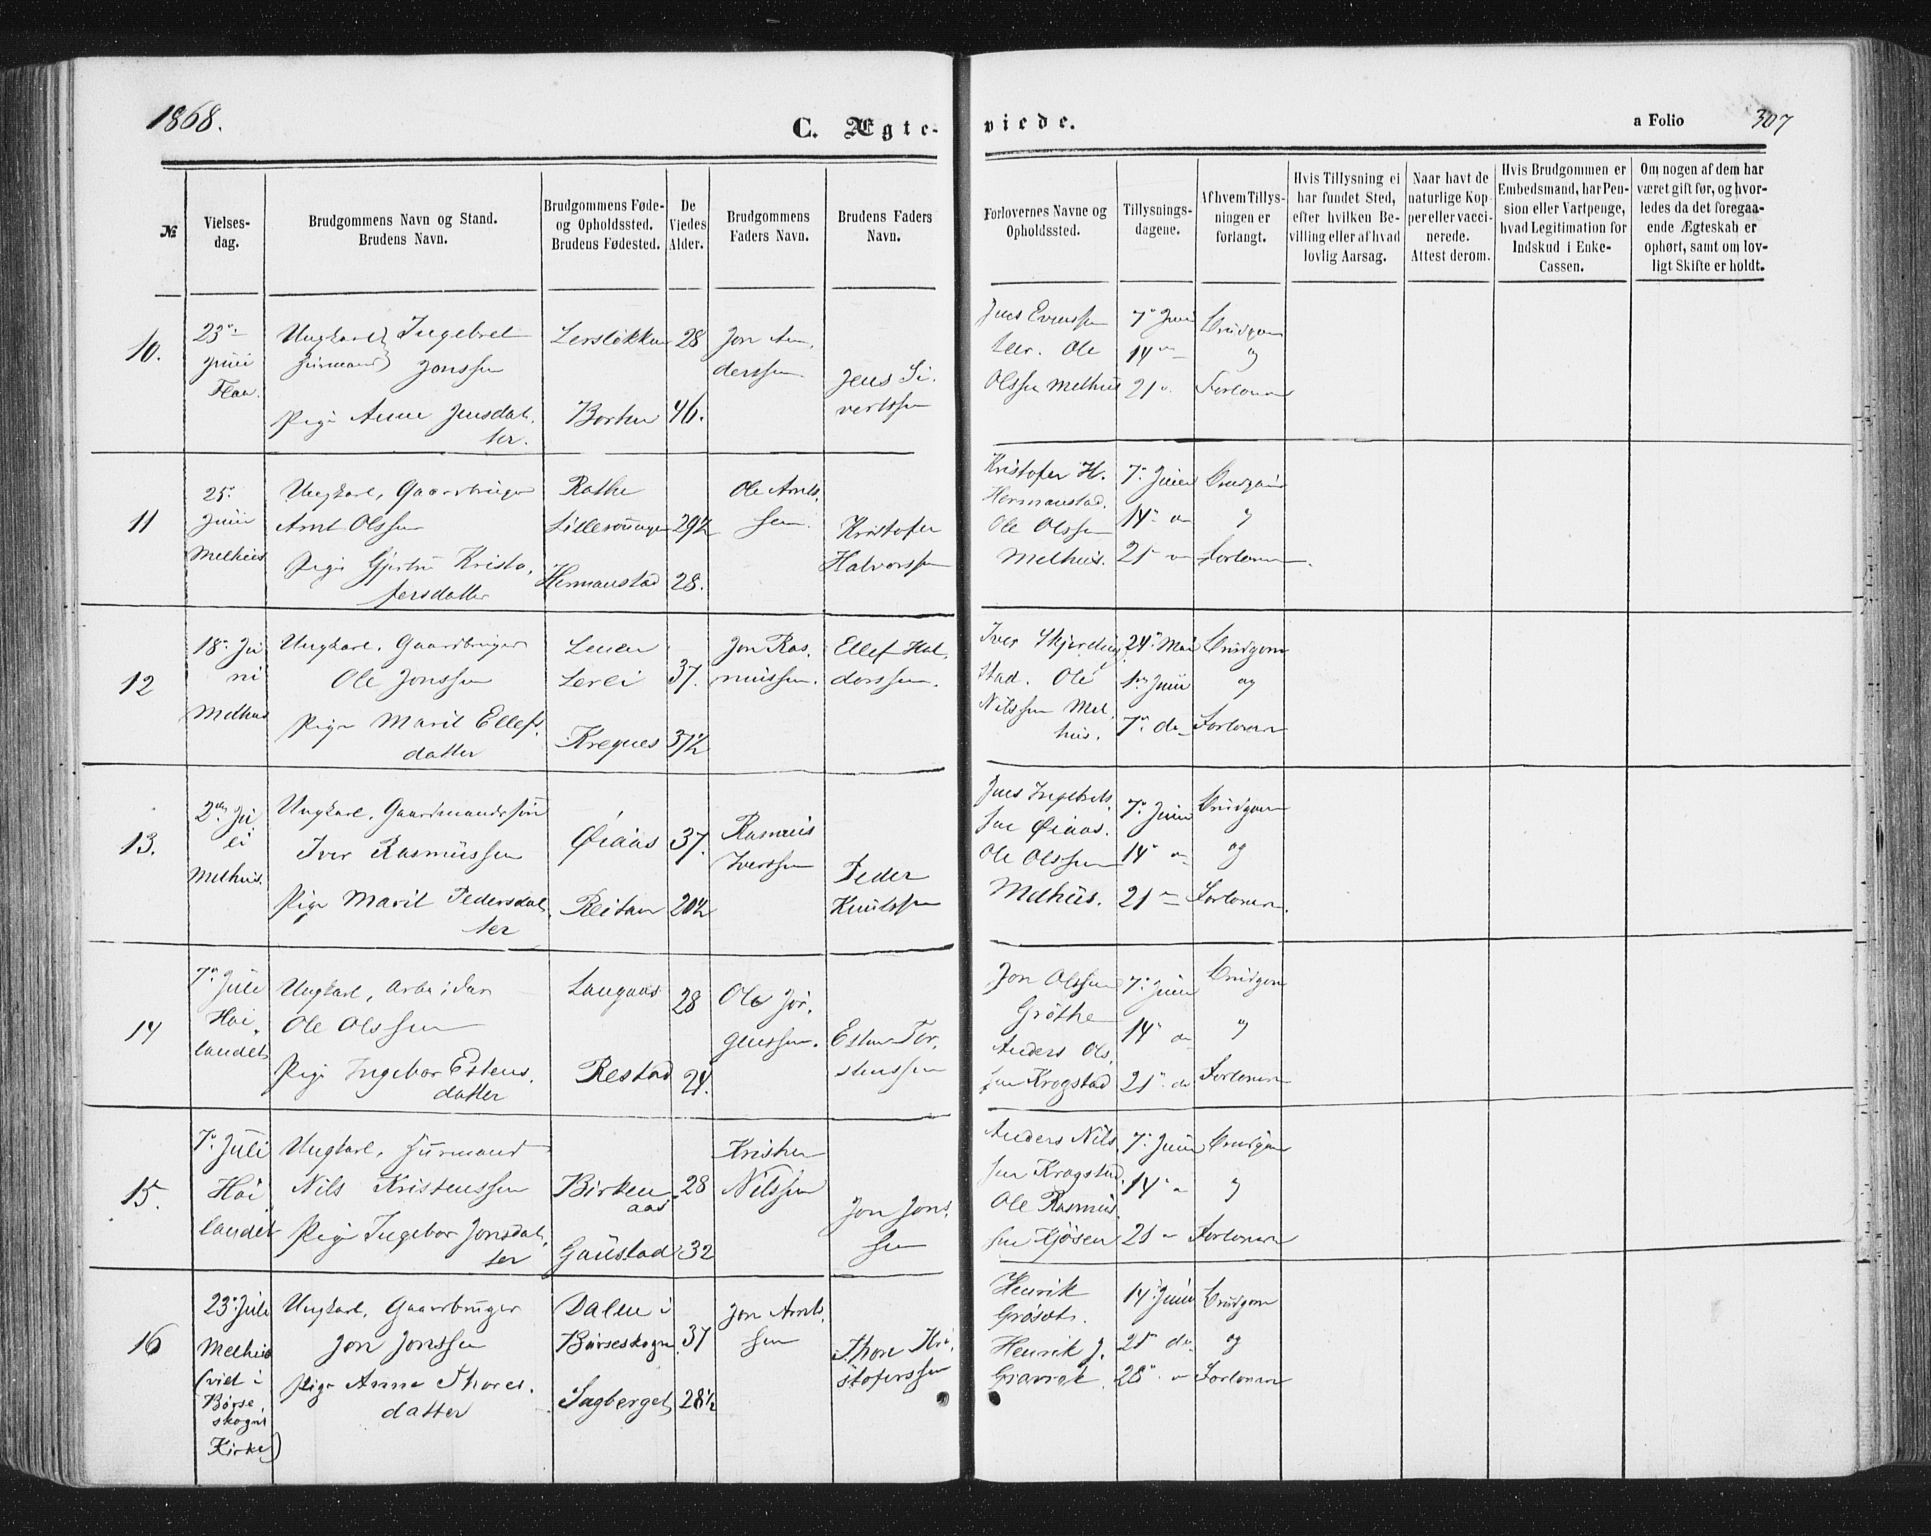 1868.
C. Ægteviede.
a Folio 307
№
Vielsesdag.
Brudgommens Navn og Stand.
Brudens Navn.
Brudgommens Føde-
og Opholdssted.
Brudens Fødested.
De
Viedes
Alder.
Brudgommens
Faders Navn.
Brudens Faders
Navn.
Forlovernes Navne og
Opholdssted.
Tillysnings-
dagene.
Af hvem Tillys-
ningen er
forlangt.
Hvis Tillysning ei
har fundet Sted,
efter hvilken Be-
villing eller af hvad
lovlig Aarsag.
Naar havt de
naturlige Kop-
per eller vacci-
nerede.
Attest derom.
Hvis Brudgommen er
Embedsmand, har Pen-
sion eller Vartpenge,
hvad Legitimation for
Indskud i Enke-
Cassen.
Om nogen af dem har
været gift før, og hvor-
ledes da det foregaa-
ende Ægteskab er
ophørt, samt om lov-
ligt Skifte er holdt.
10.
23
Juni
Flaa.
Ungkarl Ingebret
Jonssen
Pige Anne Jensdat
ter.
Lersløkken
Borten
28
46.
Jon An
derssen
Jens Si
vertssen
Jens Evenssen
Leer. Ole
Olssen Melhus
7 Juni
14
21
Brudgom
og
Forlovere
11
25
Juni
Melhus
Ungkarl, Gaardbruger
Arnt Olssen
Pige Gjertru Kristo
fersdatter
Rathe
Hermanstad
29½
28.
Ole Arnts
sen.
Kristofer
Halvorssen
Kristofer H.
Hermanstad.
Ole Olssen
Melhus.
7 Juni
14
21
Brudgom
og
Forlovere
12
18 Ju
ni
Melhus
Ungkarl, Gaardbruger
Ole Jonssen
Pige Marit Ellefs
datter
Lenen
Lerli
Kregnes
37.
37½
Jon Ras
mussen.
Ellef Hal
dorssen.
Iver Skjerding
stad. Ole
Nilssen Mel
hus.
24 Mai
1 Juni
7 do
Brudgom
og
Forlovere
13.
2den Ju
li
Melhus.
Ungkarl, Gaardmandssøn
Iver Rasmussen
Pige Marit Pedersdat
ter
Øiaas
Reitan
37.
20½
Rasmus
Iverssen
Peder
Knutssen
Jens Ingebrets
sen Øiaas.
Ole Olssen
Melhus.
7 Juni
14
21
Brudgom
og
Forlovere.
14
7 Juli
Høi
landet
Ungkarl, Arbeider
Ole Olssen
Pige Ingebor Estens
datter
Langaas
Restad
28
24.
Ole Jør
genssen.
Esten Tor
stenssen
Jon Olssen
Grøthe
Anders Ols
sen Krogstad
7 Juni
14
21 do
Brudgom
og
Forlovere
15.
7 Juli
Høi
landet
Ungkarl, Husmand
Nils Kristenssen
Pige Ingebor Jonsdat
ter
Birken
aas
Gaustad
28
32
Kristen
Nilssen
Jon Jons
sen
Anders Nils
sen Krogstad,
Ole Rasmus
sen Kjøsen
7 Juni
14
21
Brudgom
og
Forlovere
16
23 Juli
Melhus
(viet i
Børse
skogns
Kirke)
Ungkarl, Gaardbruger
Jon Jonssen
Pige Anne Thores
datter
Dalen i
Børseskogn
Sagberget
37
28½
Jon Arnts
sen
Thore Kri
stoferssen
Henrik
Grøseth.
Henrik J.
Gravrok
14 Juni
21 do
28
Brudgom
og
Forlovere